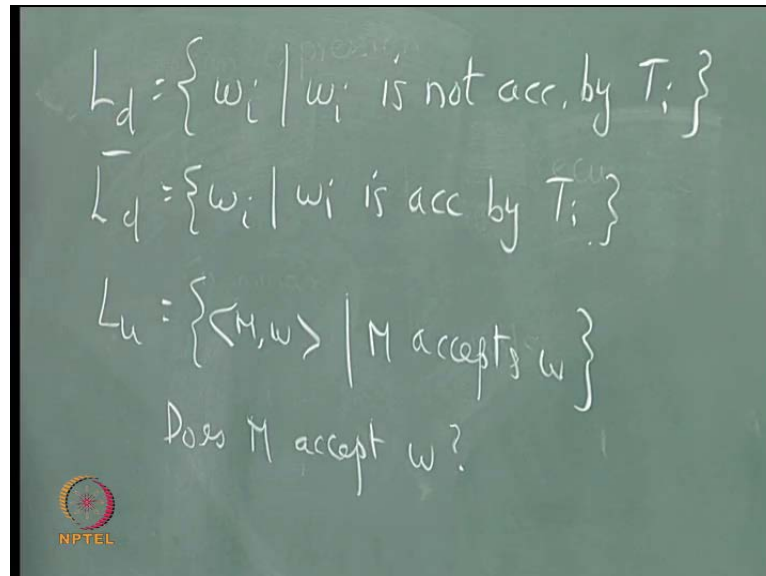 L_d = { w_i | w_i is not acc. by T_i }
L̅_d = { w_i | w_i is acc by T_i }
L_u = { <M, w> | M accepts w }
Does M accept w?
NPTEL